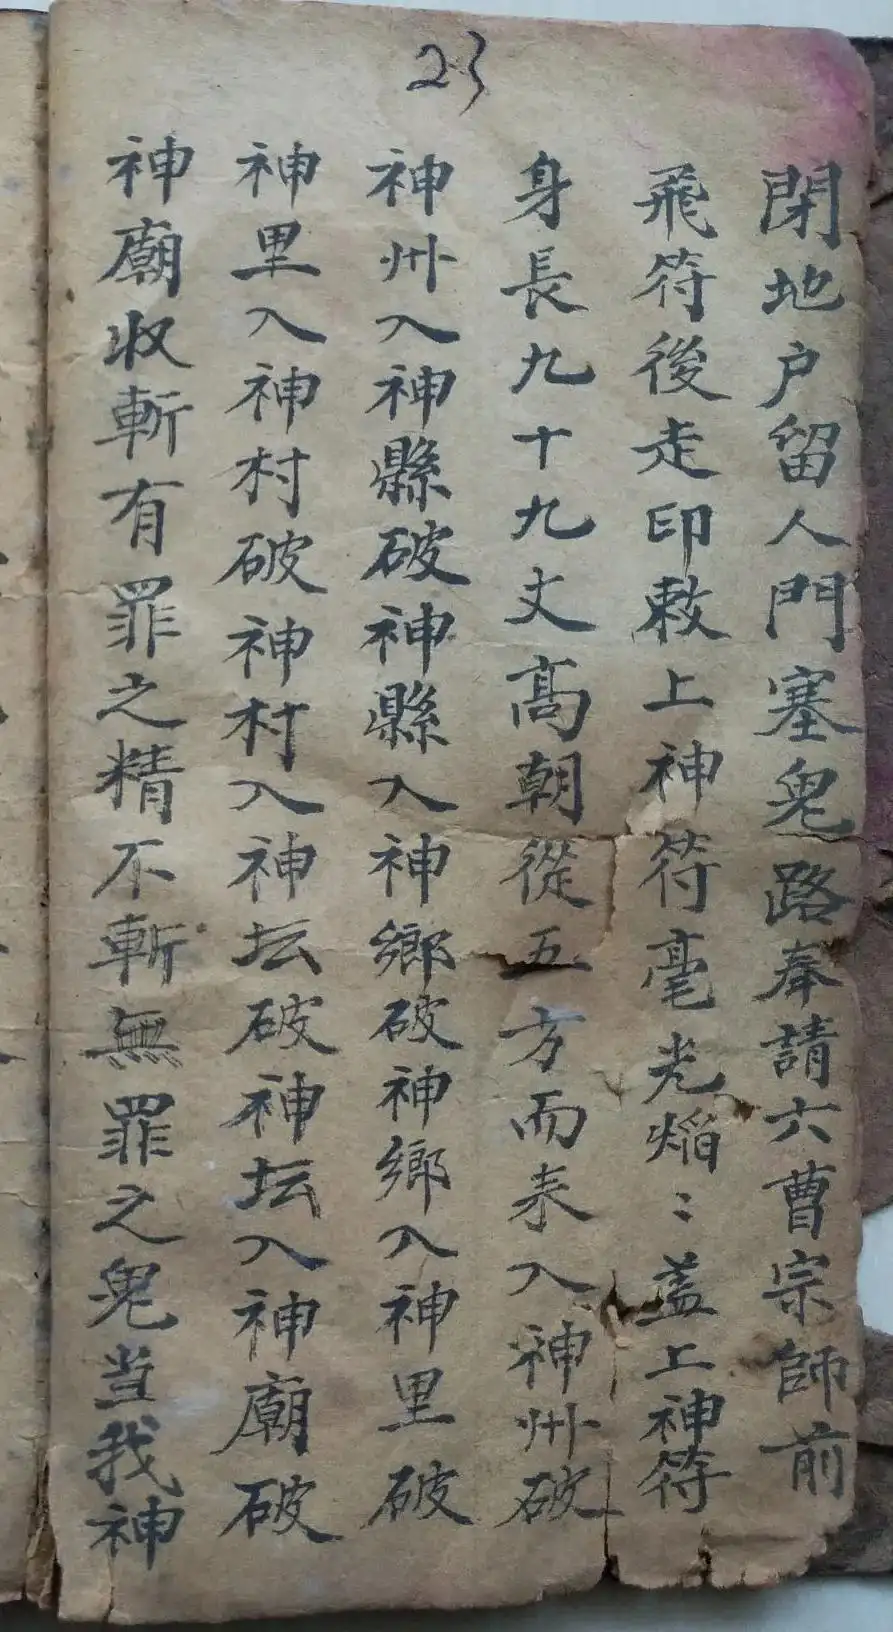 23
閉地户留人門塞鬼路奉請六曹宗師前
飛符後走印敕上神符毫光焰〻蓋上神符
身長九十九丈高朝從五方而来入神州破
神州入神縣破神縣入神鄉破神鄉入神里破
神里入神村破神村入神坛破神坛入神廟破
神廟收斬有罪之精不斬無罪之鬼当我神